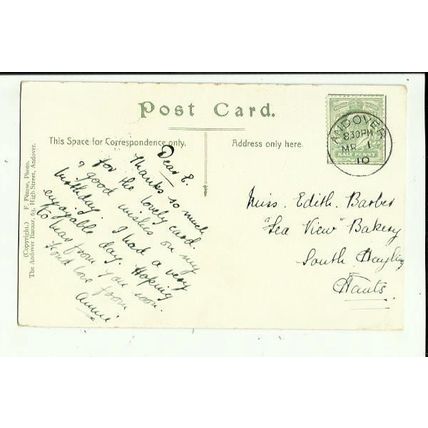 Post Card.
This Space for Correspondence only.
Address only here.
(Copyright.) F. Pearse, Photo.
The Andover Bazaar, 62, High Street, Andover.
ANDOVER
8.30PM
MR 1
10
HALFPENNY
Dear E.
Thanks so much
for the lovely card
& good wishes on my
birthday. I had a very
enjoyable day. Hoping
to hear from you soon.
Fond love from
Annie
Miss. Edith. Barber
"Sea View" Bakery
South Hayling
Hants.